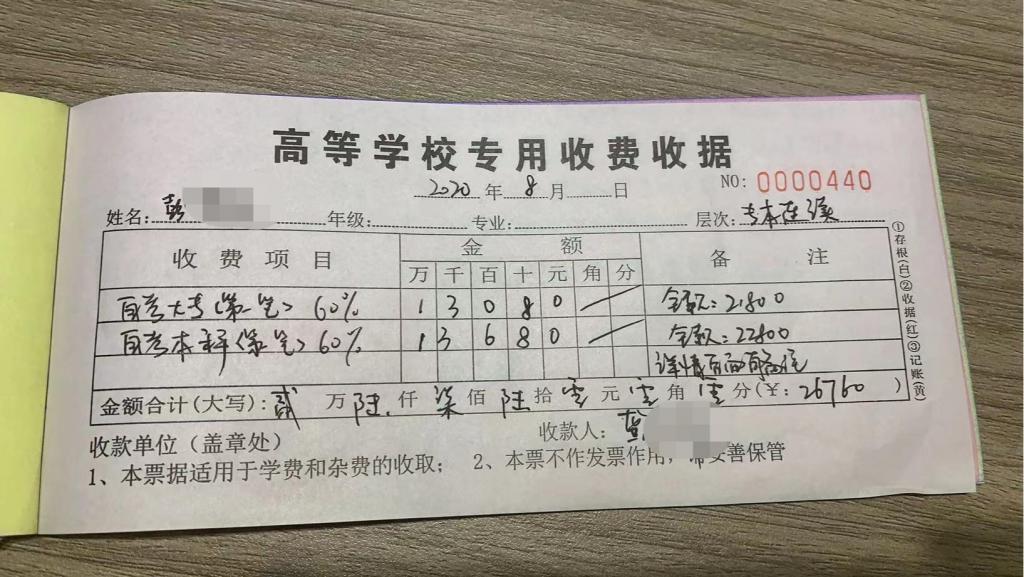 高等学校专用收费收据
2020 年 8 月 日 NO: 0000440
姓名: 彭 年级: 专业: 层次: 专本连读
收费项目 金额 备注
万 千 百 十 元 角 分
自考大专(第一笔) 60% 1 3 0 8 0 全款: 21800
自考本科(第一笔) 60% 1 3 6 8 0 全款: 22800
详情背面有备注
金额合计(大写): 贰 万 陆 仟 柒 佰 陆 拾 零 元 零 角 零 分(¥: 26760 )
收款单位(盖章处) 收款人:
1、本票据适用于学费和杂费的收取; 2、本票不作发票作用, 妥善保管
①存根(白)②收据(红)③记账(黄)